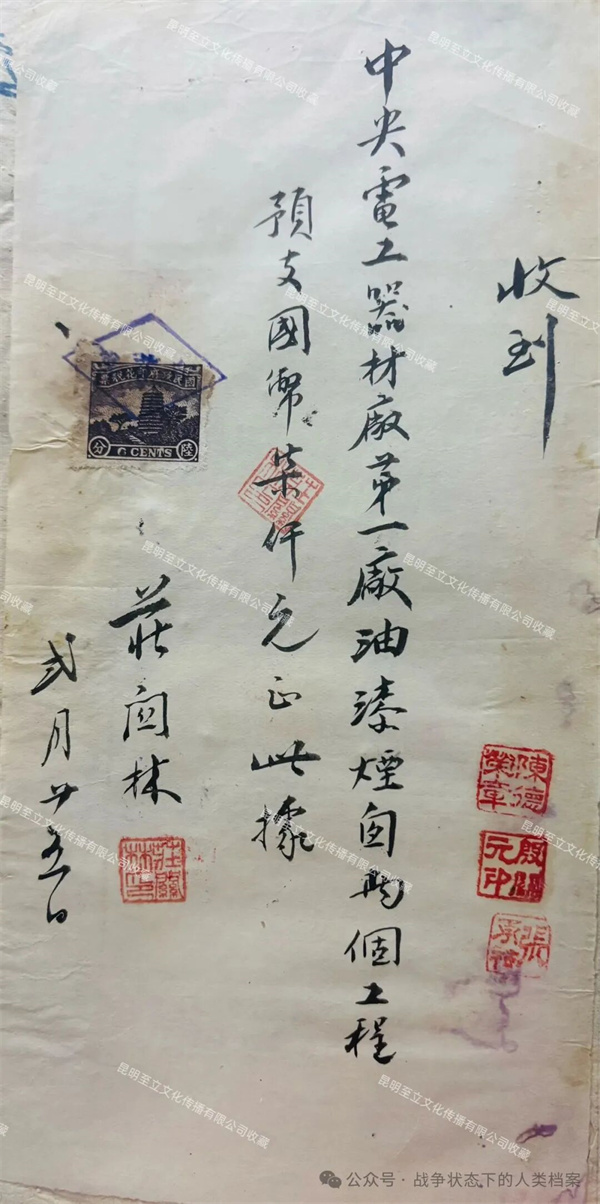 收到
中央電工器材廠第一廠油漆煙囱兩個工程
預支國幣柒仟元正此據
莊関林
弍月廿五日
國民政府印花稅票
分 6 CENTS 陸
陳德榮章
元中
張承祜
莊關林印
昆明至立文化传播有限公司收藏
公众号 · 战争状态下的人类档案